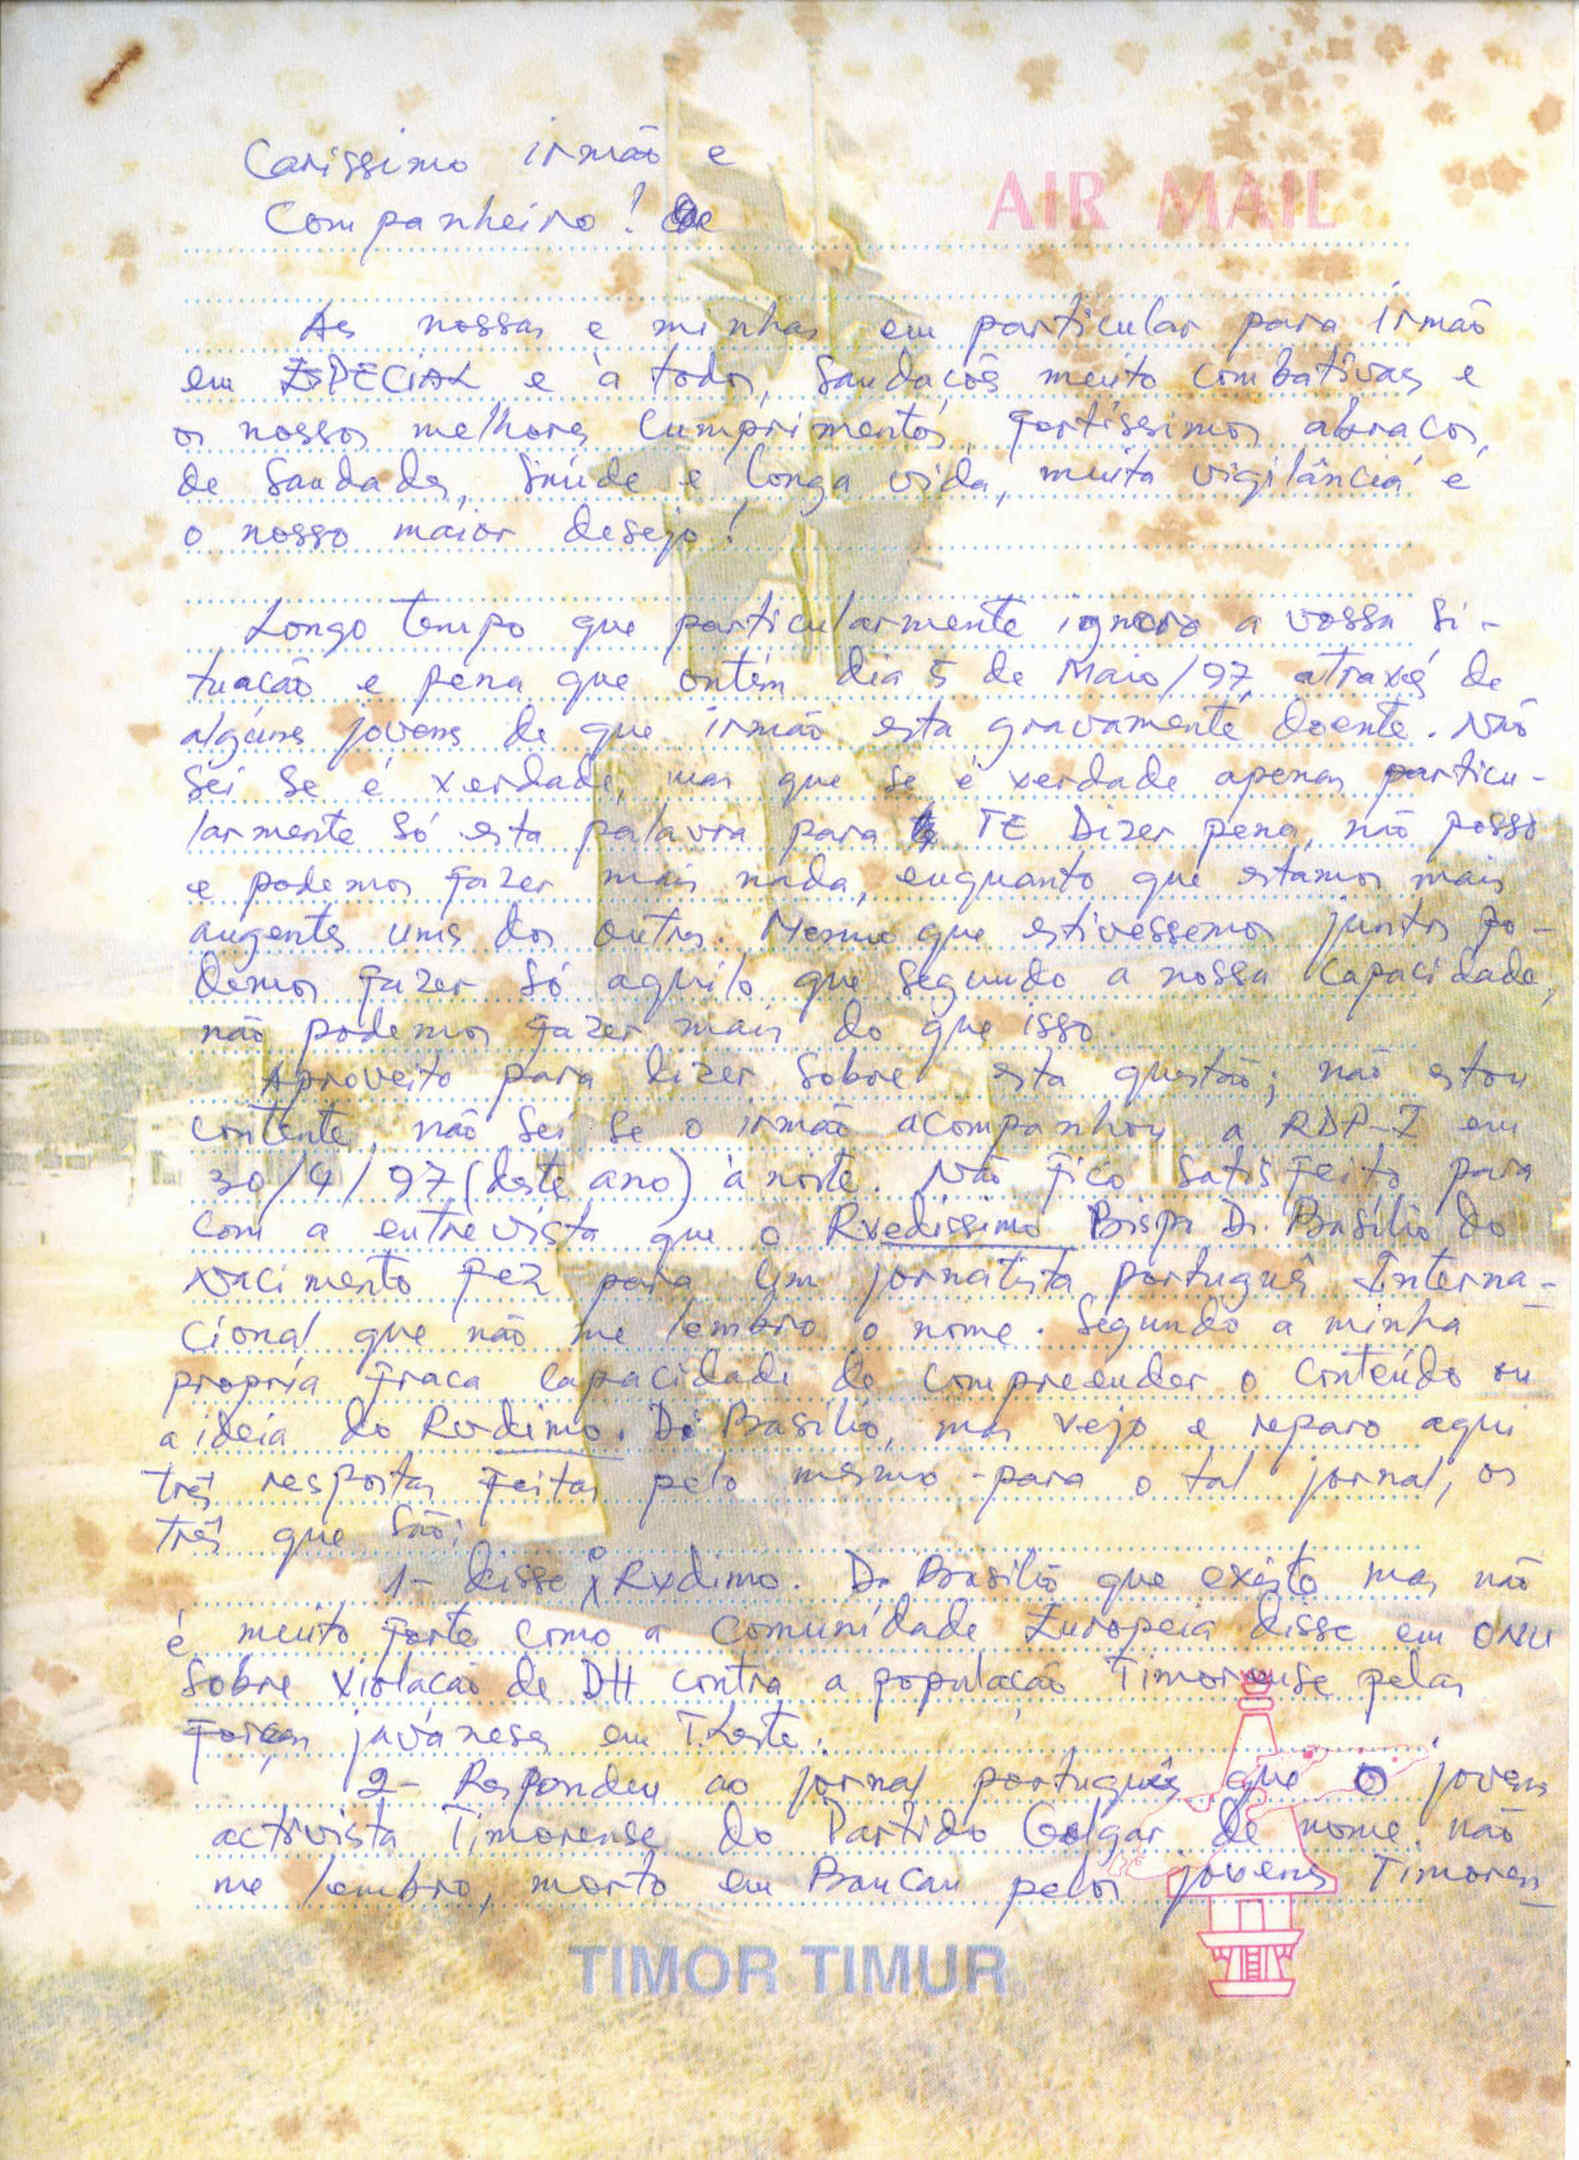 Carissimo irmão e
AIR MAIL
Companheiro!
As nossas e minhas em particular para irmão
em ESPECIAL e à todos, Saudaçõs muito combativas e
os nossos melhores Cumprimentos, fortíssimos abraços,
de Saudades, Saúde e longa vida, muita vigilância é
o nosso maior desejo!
Longo tempo que particularmente ignoro a vossa si-
tuação e pena que ontem dia 5 de Maio/97, através de
algúns jovens de que irmão esta gravamente doente. Não
sei se é verdade, mas que se é verdade apenas particu-
larmente só esta palavra para TE Dizer pena, não posso
e podemos fazer mais nada, enquanto que estamos mais
augentes uns dos outros. Mesmo que estivessemos juntos po-
demos fazer só aquilo que segundo a nossa capacidade,
não podemos fazer mais do que isso.
Aproveito para dizer sobre esta questão; não estou
contente, não sei se o irmão acompanhou a RDP-I em
30/4/97 (deste ano) à noite. Não fico satisfeito para
com a entrevista que o Rvedissimo Bispo D. Basílio do
Nacimento fez para um jornatista português Interna-
cional que não me lembro o nome. Segundo a minha
propría fraca capacidade de compreender o conteúdo ou
a ideia do Rvdimo. D. Basílio, mas vejo e reparo aqui
três respostas feitas pelo mesmo - para o tal jornal, os
três que são:
1- disse o Rvdimo. D. Basílio que existe mas não
é muito forte como a Comunidade Europeia disse em ONU
sobre violação de DH contra a população Timorense pelas
forças javanesas em T. Leste.
2- Respondeu ao jornal português que o jovem
activista Timorense do Partido Golgar de nome não
me lembro, morto em Baucau pelos jovens Timoren-
TIMOR TIMUR